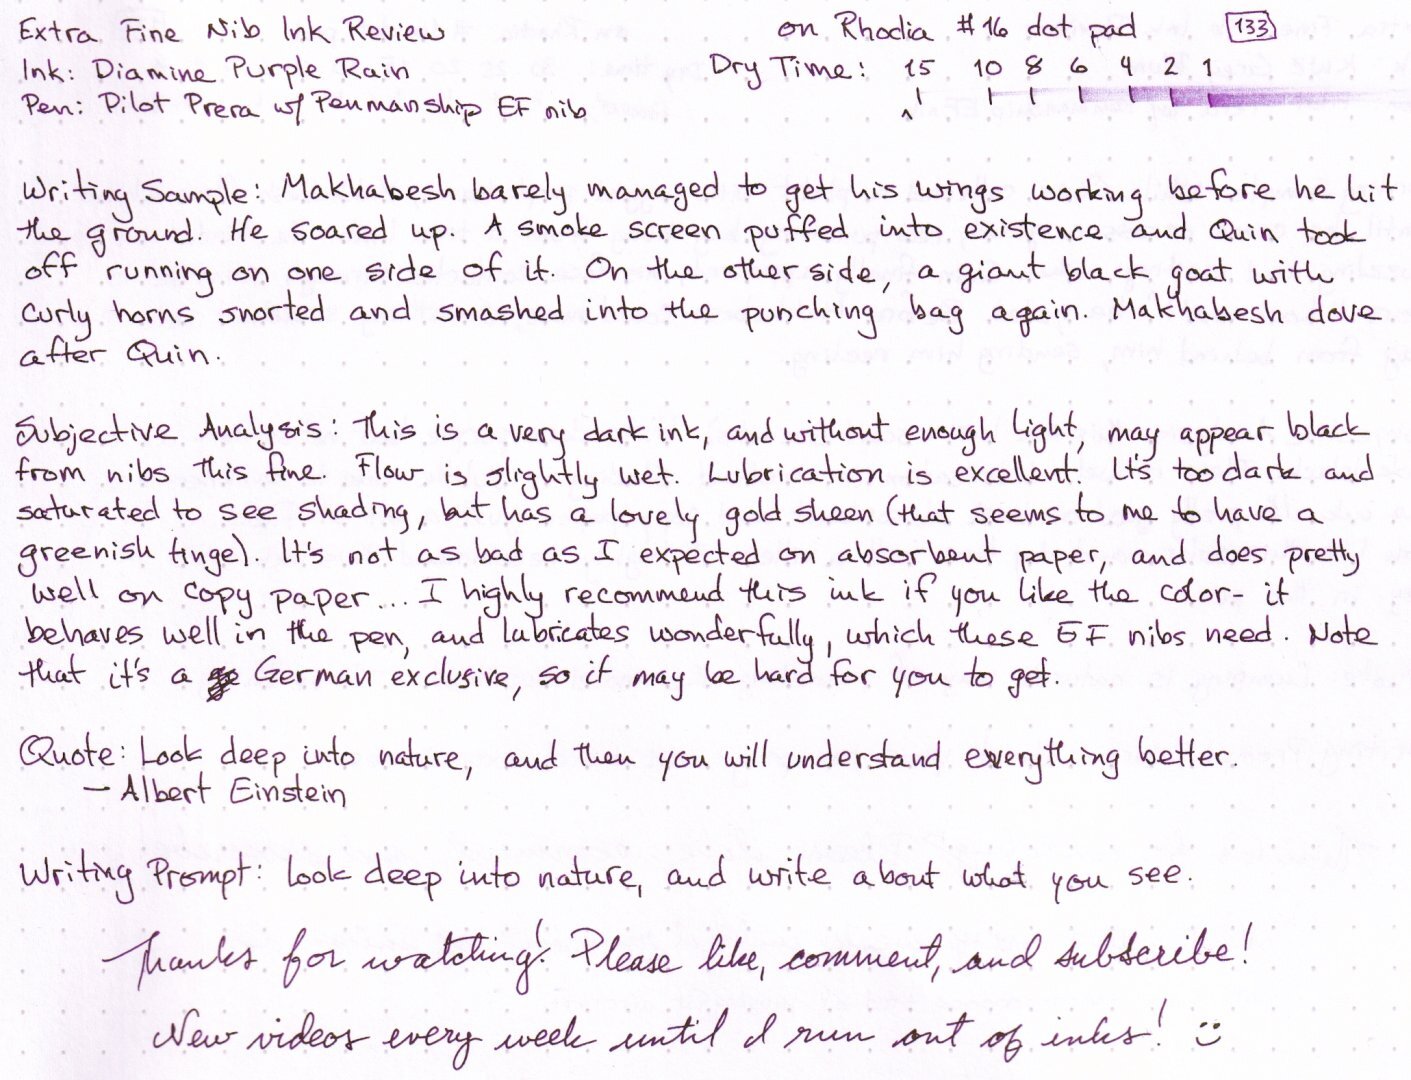 Extra Fine Nib Ink Review on Rhodia #16 dot pad 133
Ink: Diamine Purple Rain Dry Time: 15 10 8 6 4 2 1
Pen: Pilot Prera w/ Penmanship EF nib ^
Writing Sample: Makhabesh barely managed to get his wings working before he hit
the ground. He soared up. A smoke screen puffed into existence and Quin took
off running on one side of it. On the other side, a giant black goat with
curly horns snorted and smashed into the punching bag again. Makhabesh dove
after Quin.
Subjective Analysis: This is a very dark ink, and without enough light, may appear black
from nibs this fine. Flow is slightly wet. Lubrication is excellent. It's too dark and
saturated to see shading, but has a lovely gold sheen (that seems to me to have a
greenish tinge). It's not as bad as I expected on absorbent paper, and does pretty
well on copy paper... I highly recommend this ink if you like the color- it
behaves well in the pen, and lubricates wonderfully, which these EF nibs need. Note
that it's a German exclusive, so it may be hard for you to get.
Quote: Look deep into nature, and then you will understand everything better.
- Albert Einstein
Writing Prompt: Look deep into nature, and write about what you see.
Thanks for watching! Please like, comment, and subscribe!
New videos every week until I run out of inks! :)